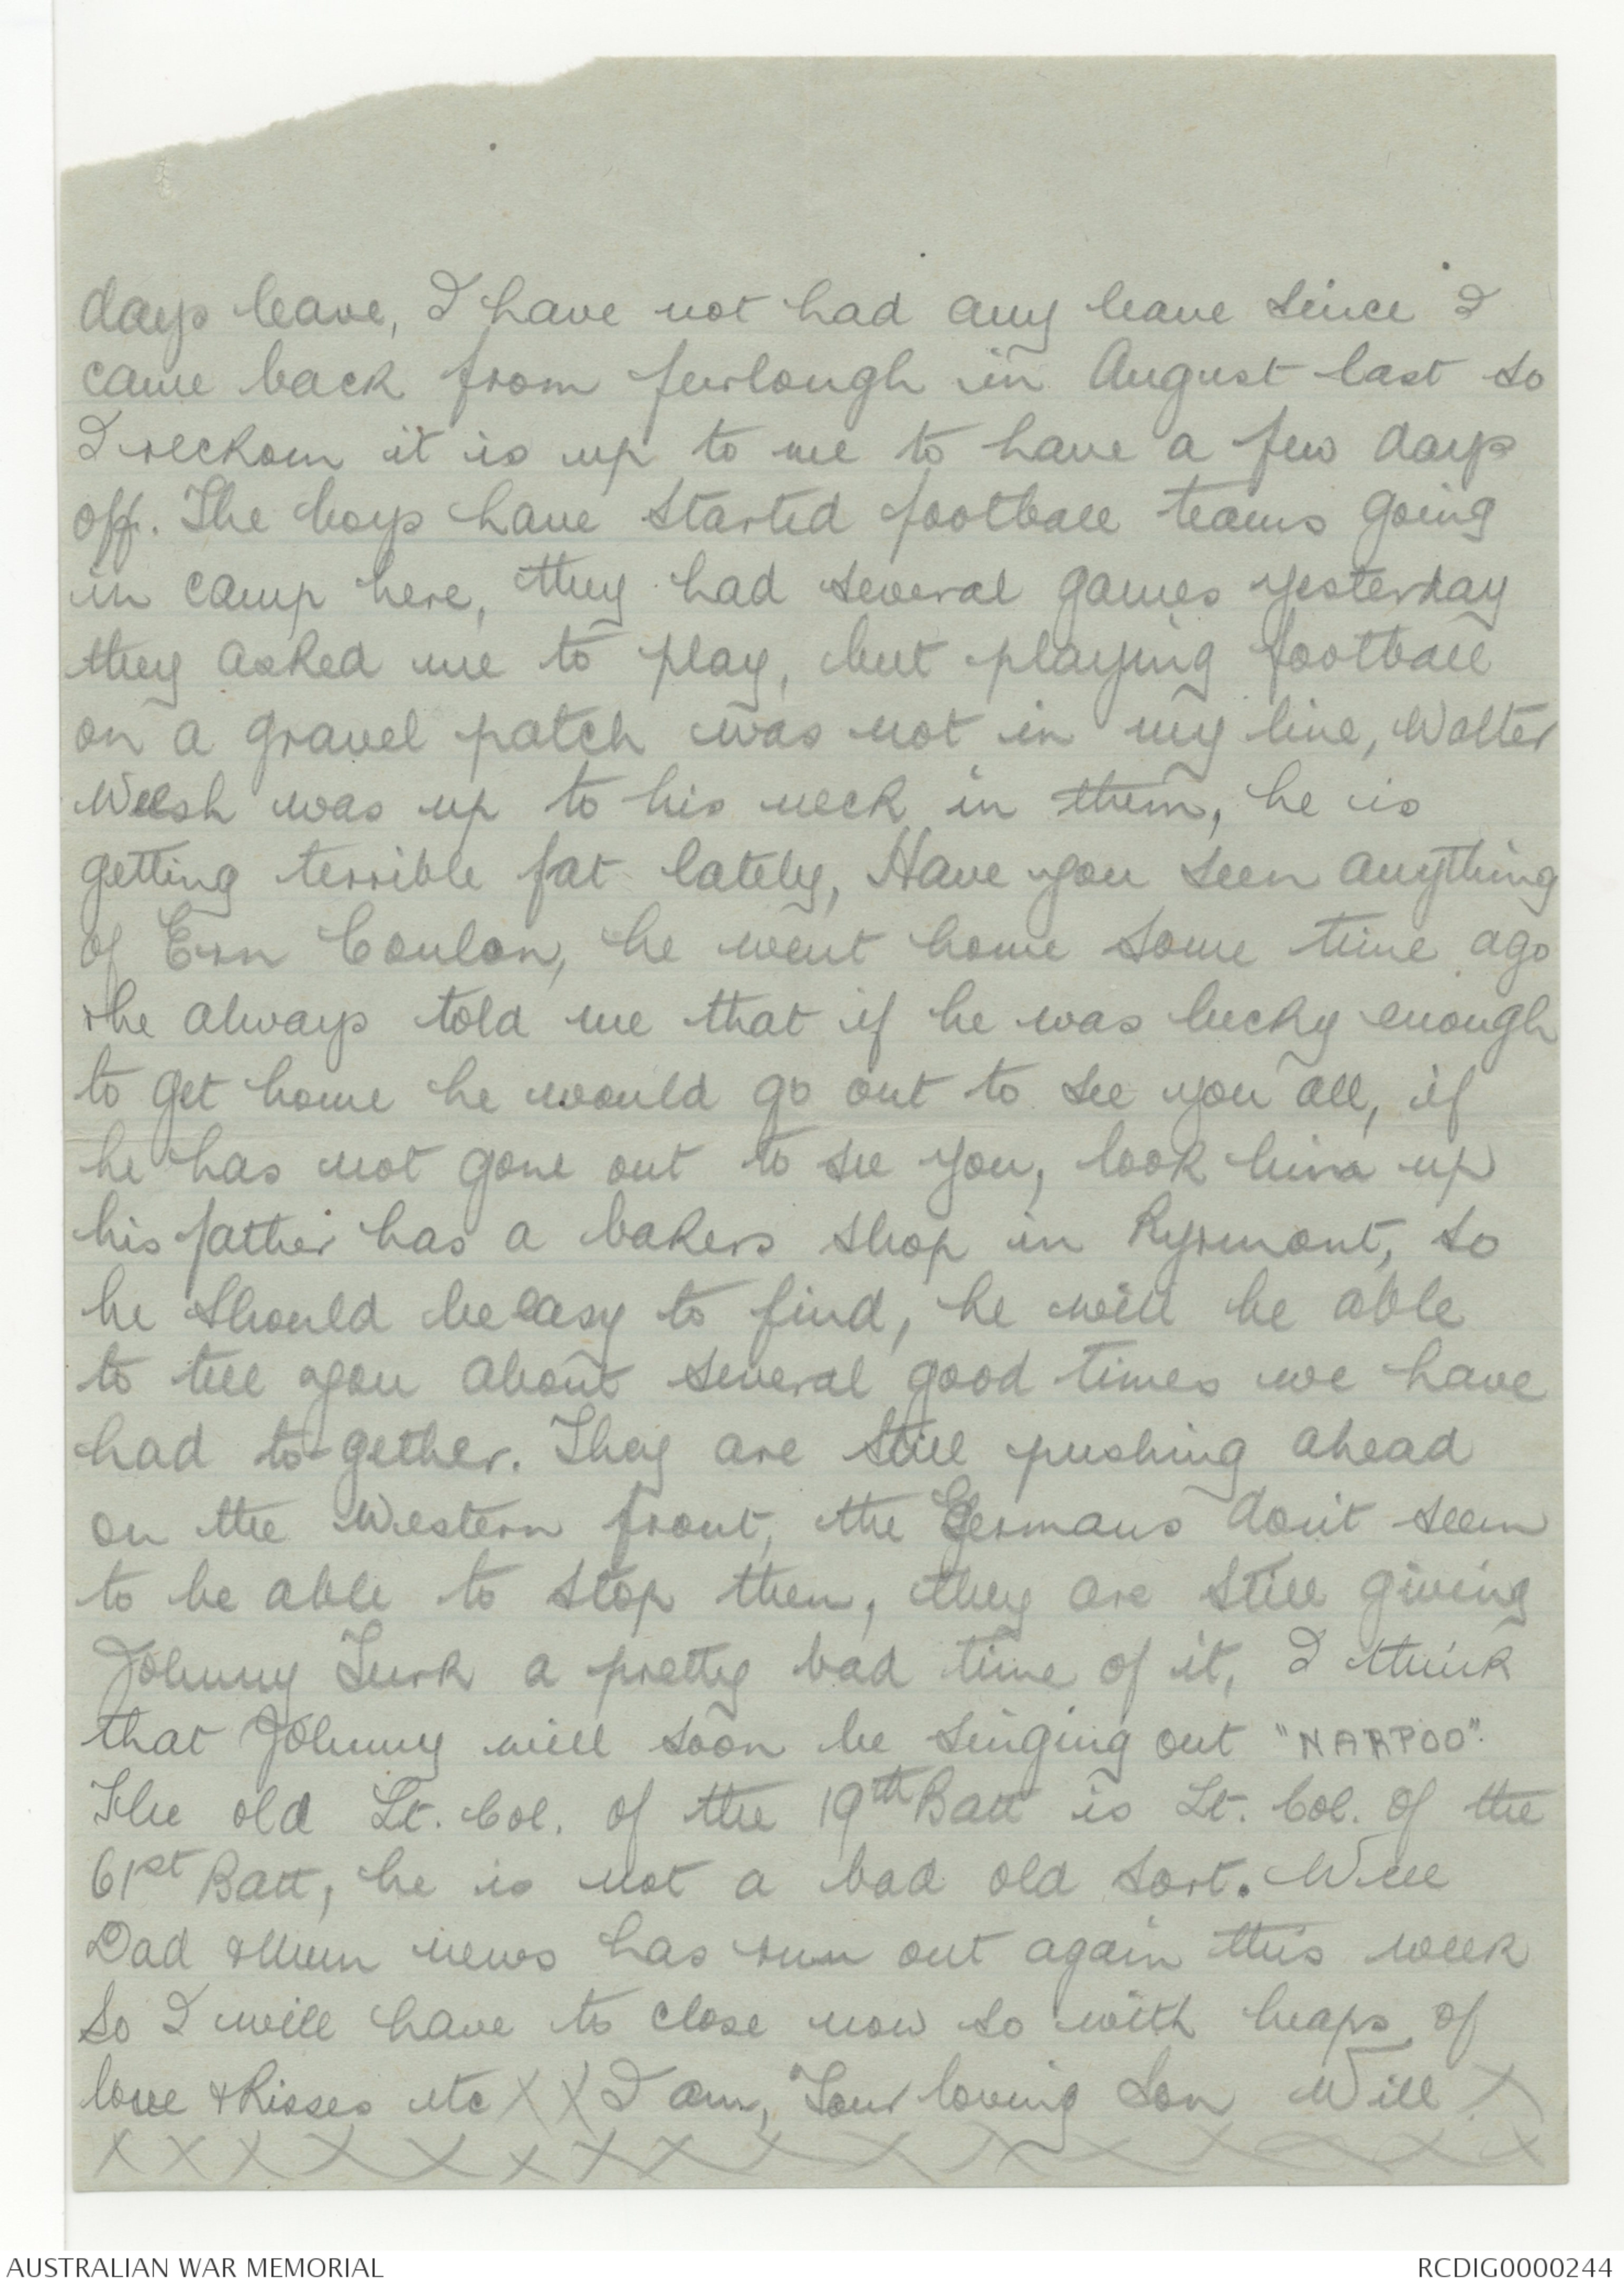 days leave, I have not had any leave since I
came back from furlough in August last so
I reckom it is up to me to have a few days
off. The boys have started football teams going
in camp here, they had several games yesterday
they asked me to play, but playing football
on a gravel patch was not in my line, Walter
Welsh was up to his neck in them, he is
getting terrible fat lately, Have you seen anything
of Ern Coulon, he went home some time ago
& he always told me that if he was lucky enough
to get home he would go out to see you all, if
he has not gone out to see you, look him up
his father has a bakers shop in Pyrmont, so
he should be easy to find, he will be able
to tell you about several good times we have
had to-gether. They are still pushing ahead
on the Western front, the Germans don't seem
to be able to stop them, they are still giving
Johnny Turk a pretty bad time of it, I think
that Johnny will soon be singing out "NARPOO".
The old Lt. Col. of the 19th Batt is Lt. Col. of the
61st Batt, he is not a bad old sort. Well
Dad & Mum news has run out again this week
so I will have to close now so with heaps of
love & kisses etc X X I am, Your loving Son Will X
X X X X X X X X X X X X X X X X
AUSTRALIAN WAR MEMORIAL
RCDIG0000244